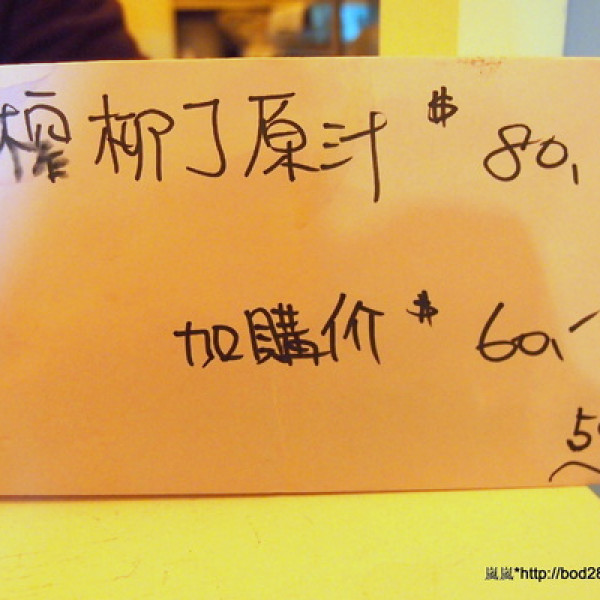 榨柳丁原汁 $ 80,
加購价 $ 60,-
5
嵐嵐*http://bod28